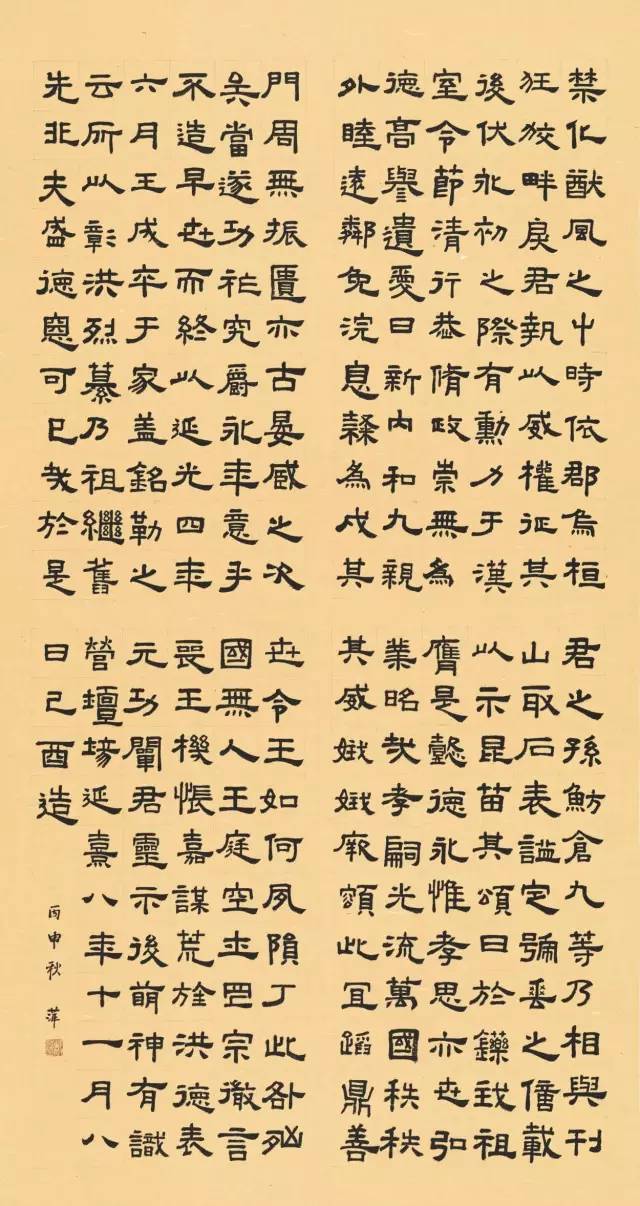 禁化猷風之中時依郡烏桓
狂狡畔戾君執以威權征其
後伏永初之際有勳力于漢
室令節清行恭脩政崇無為
德高譽遺愛日新內和九親
外睦遠鄰免浣息隸為成其
門周無振匱亦古晏臧之次
矣當遂功祉究爵永年意乎
不造早世而終以延光四年
六月壬戌卒于家蓋銘勒之
云所以彰洪烈纂乃祖繼舊
先非夫盛德惡可已哉於是
君之孫魴倉九等乃相與刊
山取石表謚定號垂之億載
以示昆苗其頌曰於鑠我祖
膺是懿德永惟孝思亦世弘
業昭哉孝嗣光流萬國秩秩
其威娥娥厥頌此宜蹈鼎善
世令王如何夙隕丁此咎凶
國無人王庭空士罔宗徹言
喪王機悵嘉謀荒旌洪德表
元功闡君靈示後萌神有識
營壇場延熹八年十一月八
日己酉造
丙申秋 萍